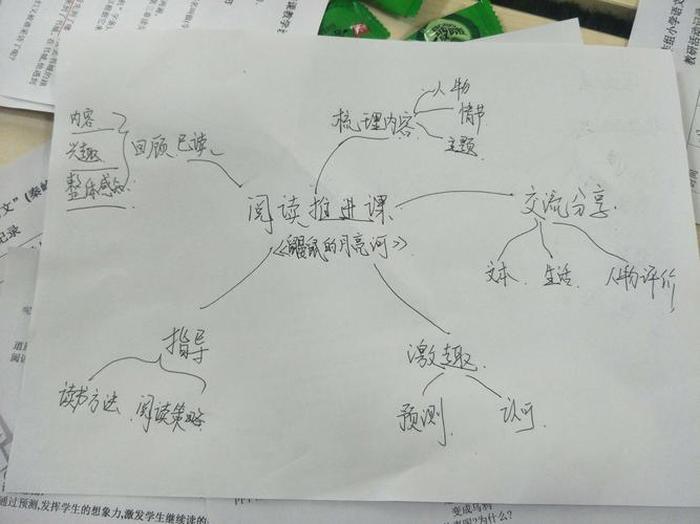 内容
兴趣
整体感知
回顾已读
梳理内容
人物
情节
主题
阅读推进课
《鼹鼠的月亮河》
交流分享
文本
生活
人物评价
指导
读书方法
阅读策略
激趣
预测
认可
通过预测,发挥学生的想象力,激发学生继续读的
变成乌鸦
为什么?